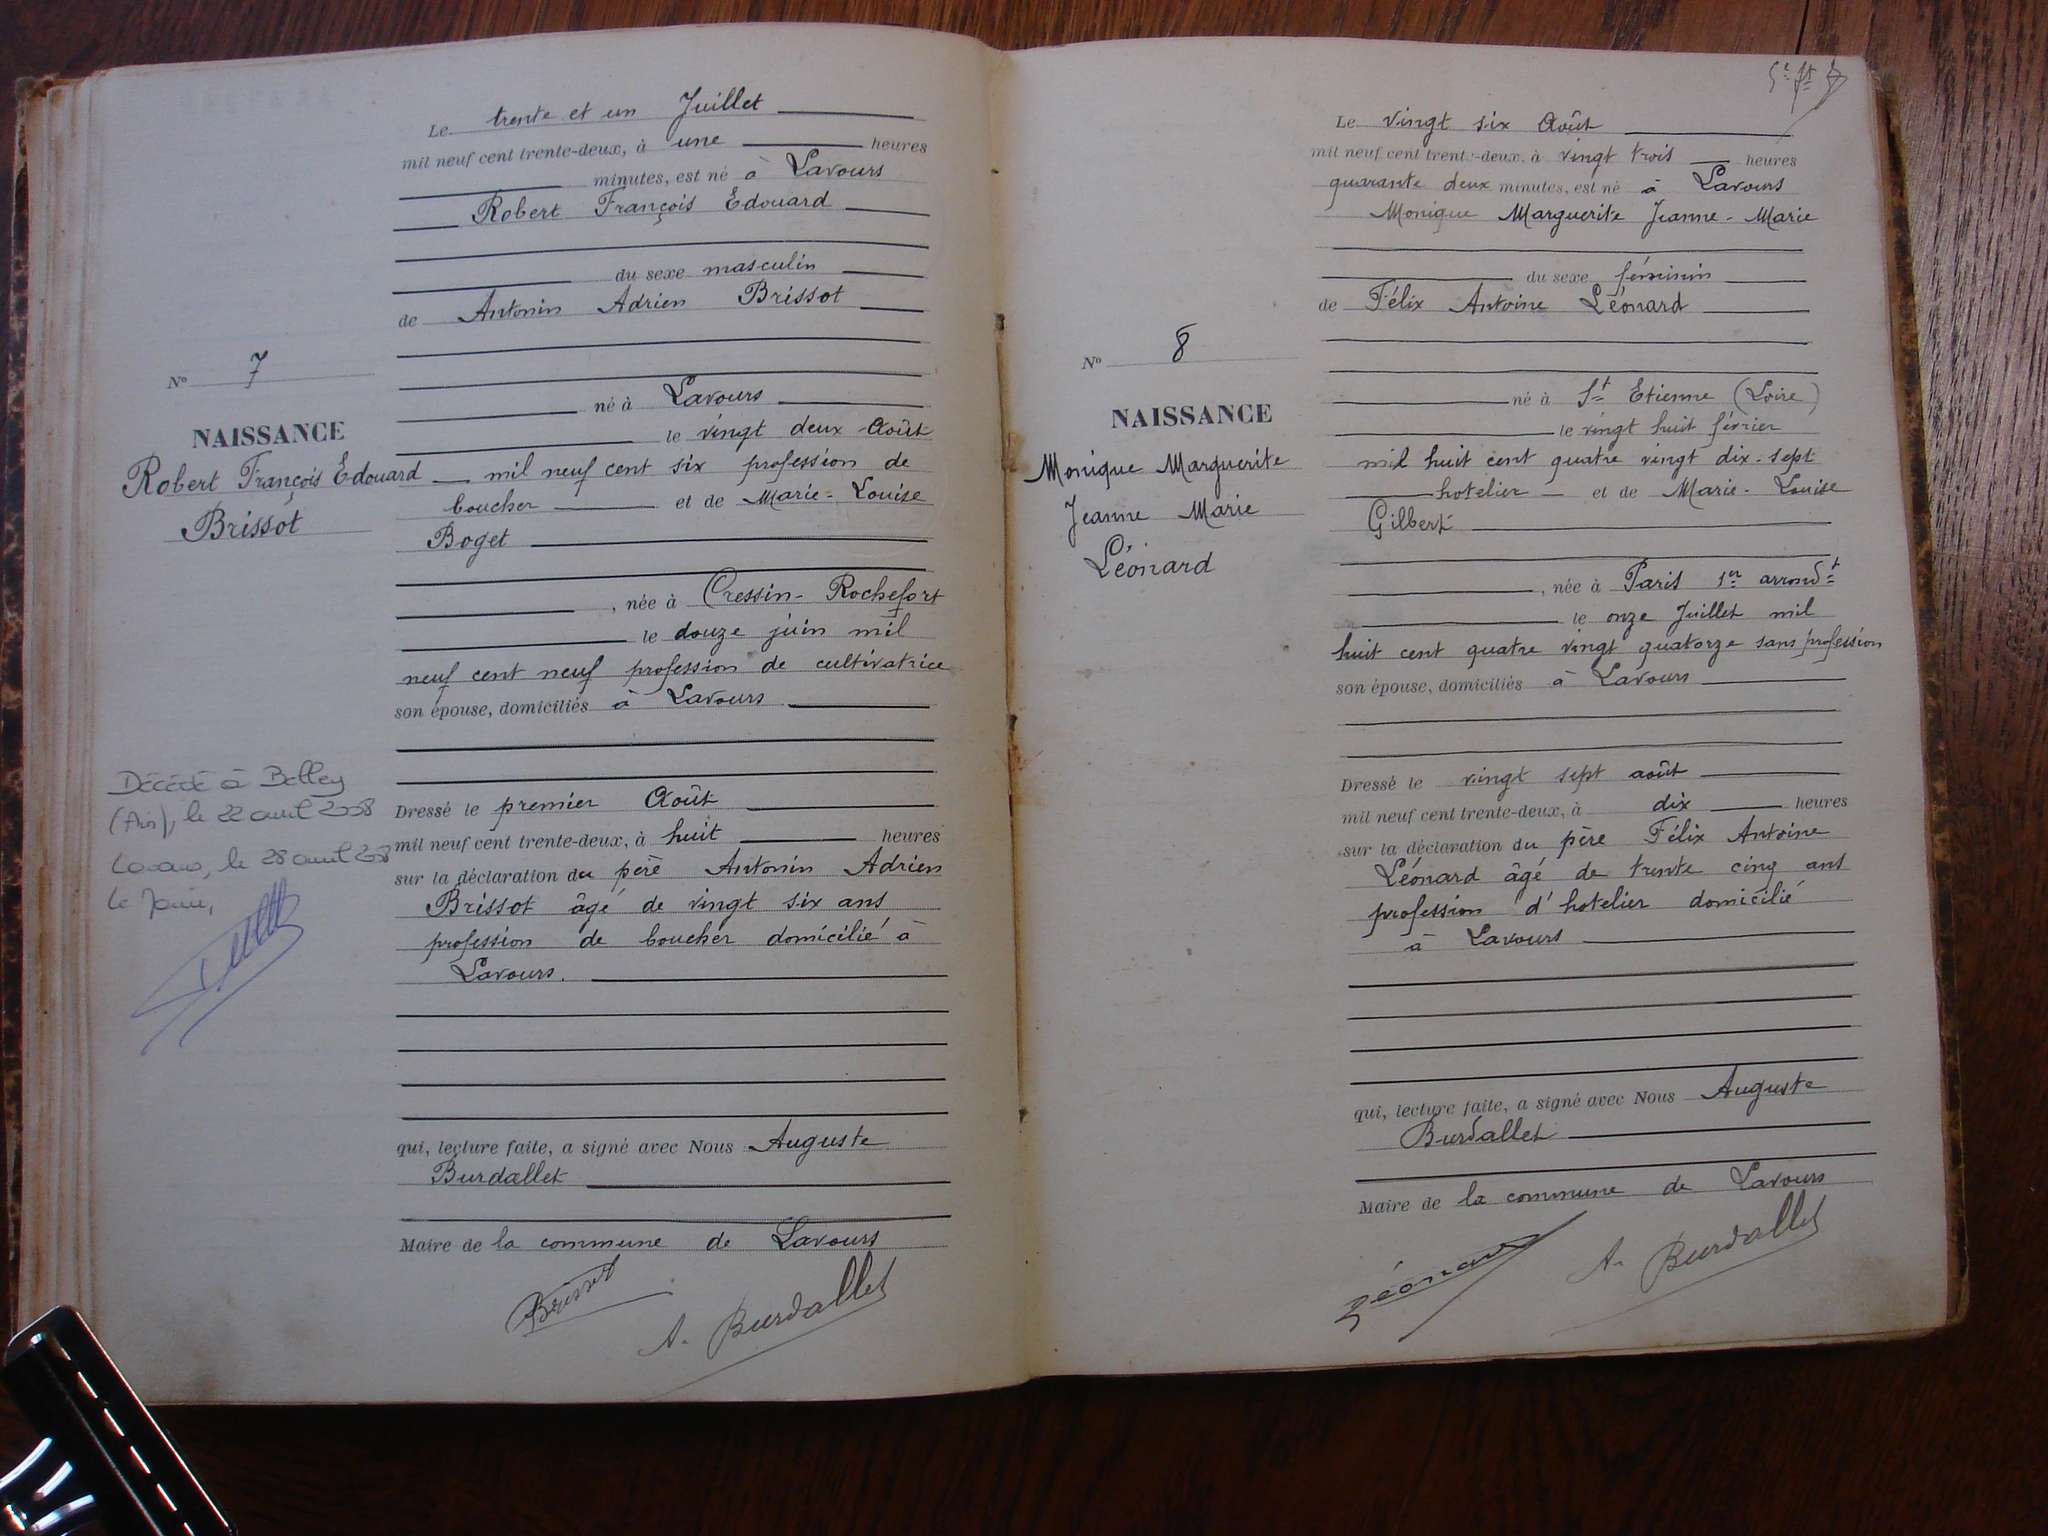 Le trente et un Juillet
mil neuf cent trente-deux, à une heures
minutes, est né à Lavours
Robert François Edouard
du sexe masculin
de Antonin Adrien Brissot
né à Lavours
le vingt deux Août
mil neuf cent six profession de
boucher et de Marie-Louise
Boget
, née à Cressin-Rochefort
le douze juin mil
neuf cent neuf profession de cultivatrice
son épouse, domiciliés à Lavours
Dressé le premier Août
mil neuf cent trente-deux, à huit heures
sur la déclaration du père Antonin Adrien
Brissot âgé de vingt six ans
profession de boucher domicilié à
Lavours.
qui, lecture faite, a signé avec Nous Auguste
Burdallet
Maire de la commune de Lavours
Brissot
A. Burdallet
No 7
NAISSANCE
Robert François Edouard
Brissot
Décédé à Belley
(Ain), le 22 avril 2008
Lavours, le 28 avril 2008
Le Maire,
Le vingt six Août
mil neuf cent trente-deux, à vingt trois heures
quarante deux minutes, est né à Lavours
Monique Marguerite Jeanne-Marie
du sexe féminin
de Félix Antoine Léonard
né à St Etienne (Loire)
le vingt huit février
mil huit cent quatre vingt dix-sept
hotelier et de Marie-Louise
Gilbert
, née à Paris 1er arrondt
le onze Juillet mil
huit cent quatre vingt quatorze sans profession
son épouse, domiciliés à Lavours
Dressé le vingt sept août
mil neuf cent trente-deux, à dix heures
sur la déclaration du père Félix Antoine
Léonard âgé de trente cinq ans
profession d'hotelier domicilié
à Lavours
qui, lecture faite, a signé avec Nous Auguste
Burdallet
Maire de la commune de Lavours
Léonard
A. Burdallet
No 8
NAISSANCE
Monique Marguerite
Jeanne Marie
Léonard